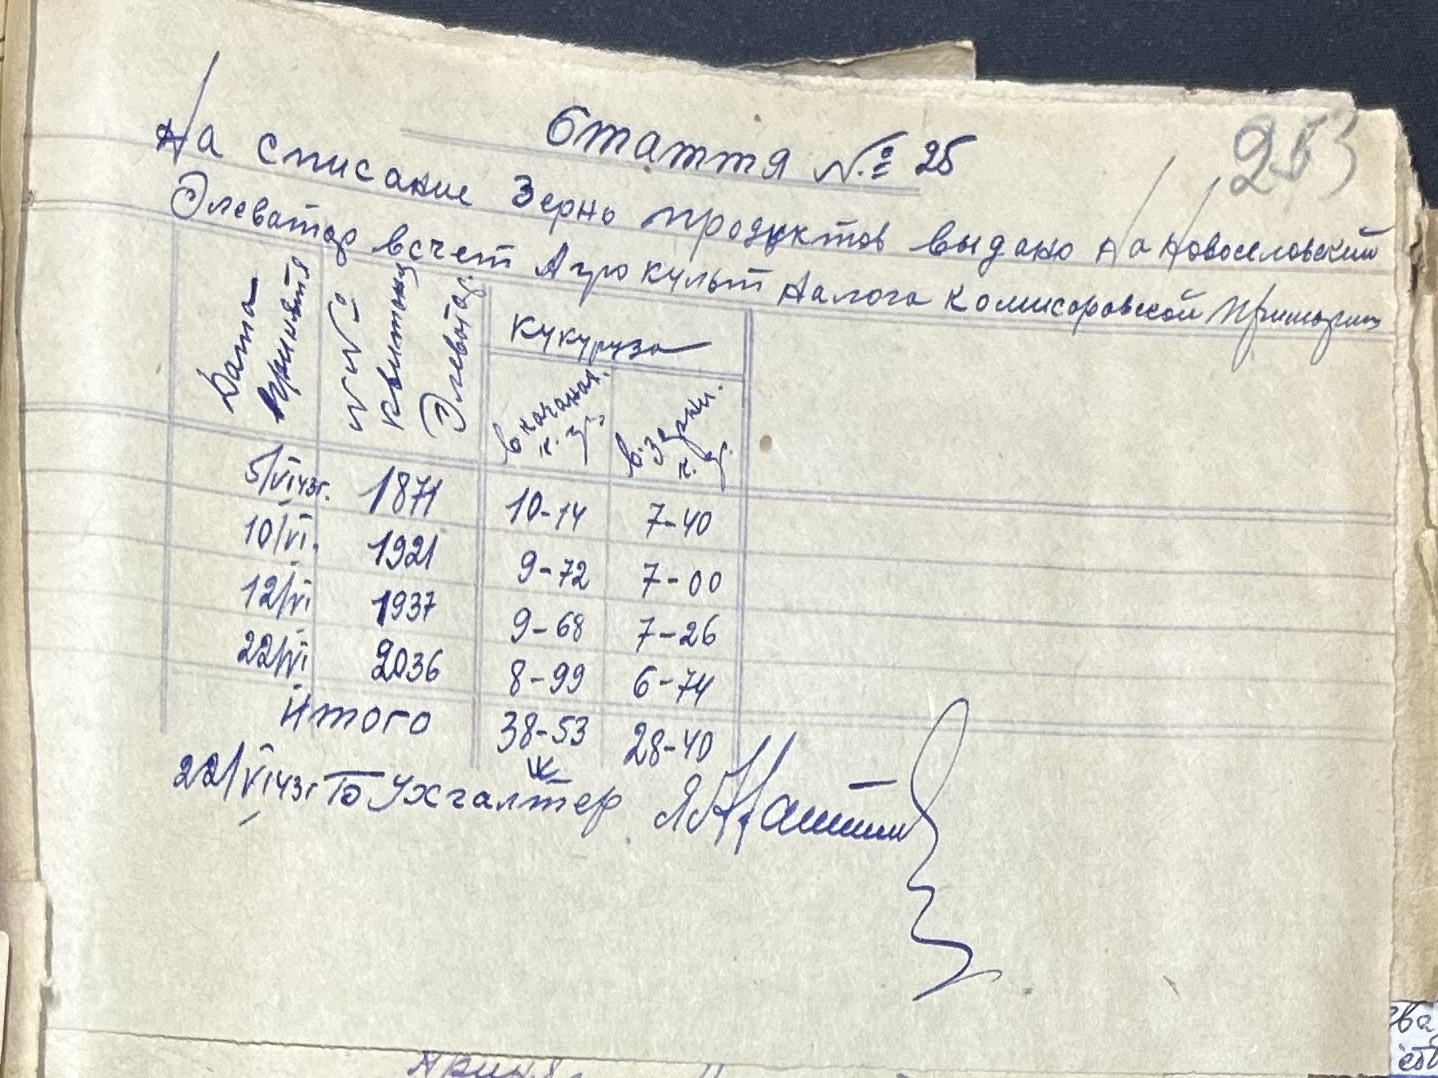 253
Стаття № 25
На списание Зерно продуктов выдано на Новоселовский
Элеватор всчет Агрокульт налога Комисаровской Примарии
Дата принятя
№№ квитанц Элеватор.
Кукуруза
в качанах. к. гр.
в. зерни. к. гр.
5/VI 43г. 1871 10-14 7-40
10/VI. 1921 9-72 7-00
12/VI 1937 9-68 7-26
22/VI 2036 8-99 6-74
Итого 38-53 28-40
22/VI 43г Бухгалтер